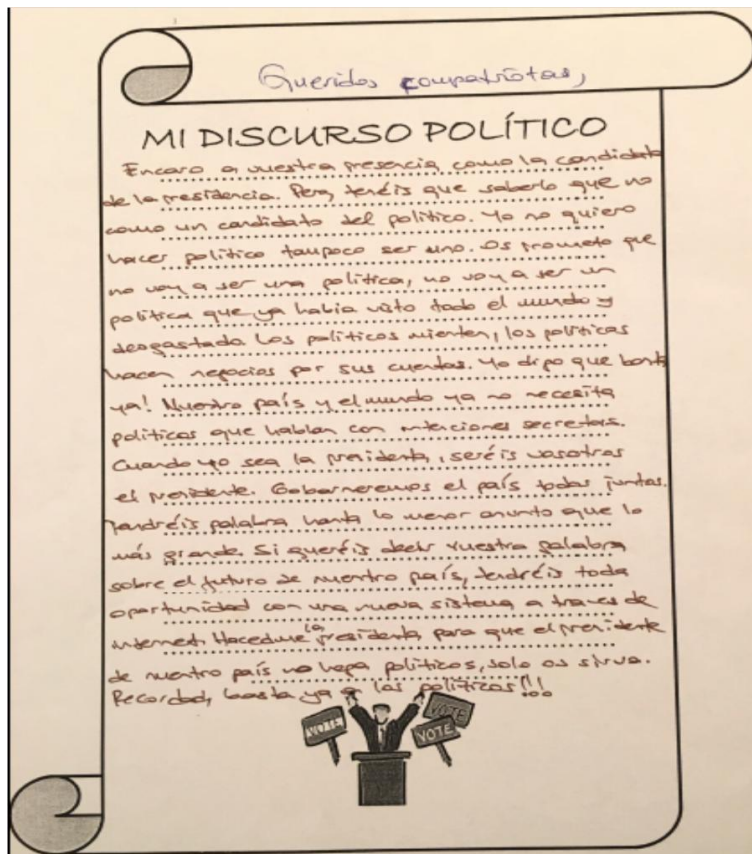 Queridos compatriotas,
MI DISCURSO POLÍTICO
Encaro a vuestra presencia como la candidata
de la presidencia. Pero, tenéis que saberlo que no
como un candidato del político. Yo no quiero
hacer político tampoco ser uno. Os prometo que
no voy a ser una política, no voy a ser un
política que ya había visto todo el mundo y
desgastada. Los políticos mienten, los políticos
hacen negocios por sus cuentas. Yo digo que basta
ya! Nuestro país y el mundo ya no necesita
políticos que hablan con intenciones secretas.
Cuando yo sea la presidenta, seréis vosotros
el presidente. Gobernaremos el país todos juntos.
Tendréis palabra hasta lo menor asunto que lo
más grande. Si queréis decir vuestra palabra
sobre el futuro de nuestro país, tendréis toda
oportunidad con una nueva sistema a traves de
internet. Hacedme la presidenta para que el presidente
de nuestro país no haga políticos, solo os sirva.
Recordad, basta ya a los políticos!!!
VOTE VOTE
VOTE